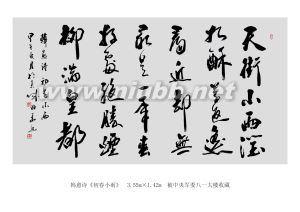 天街小雨潤
如酥草色遥
看近却無
最是一年春
好處絕勝煙
柳滿皇都
韓愈詩初春小雨
韩愈诗《初春小雨》 3.55m×1.42m 被中央军委八一大楼收藏